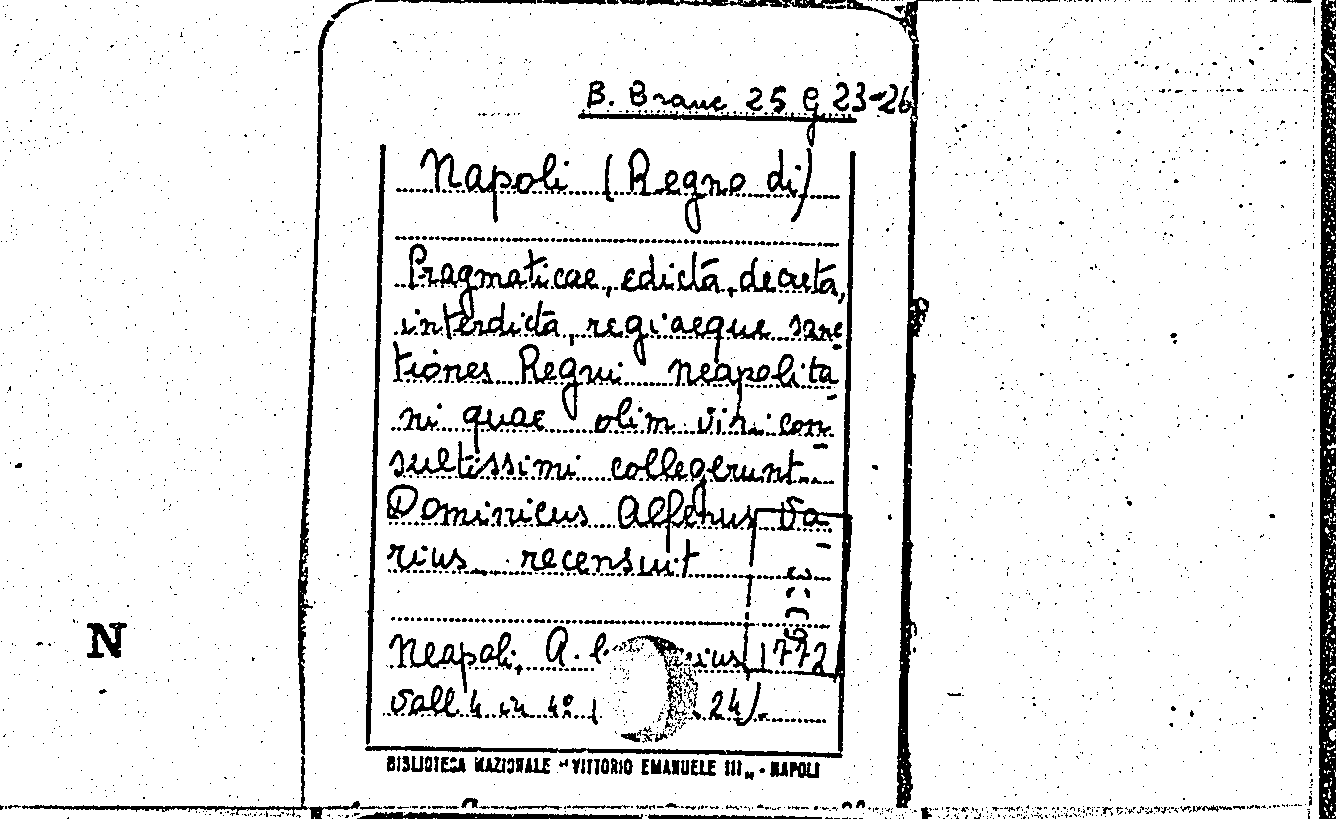 B. Branc 25 G 23-26
Napoli (Regno di)
Pragmaticae, edicta, decreta,
interdicta, regiaeque sanc-
tiones Regni Neapolita-
ni quae olim viri con-
sultissimi collegerunt...
Dominicus Alfenus Va-
rius recensuit
Neapoli, A. 1772
Voll 4 in 4º ( 24).
BIBLIOTECA NAZIONALE "VITTORIO EMANUELE III" - NAPOLI
N